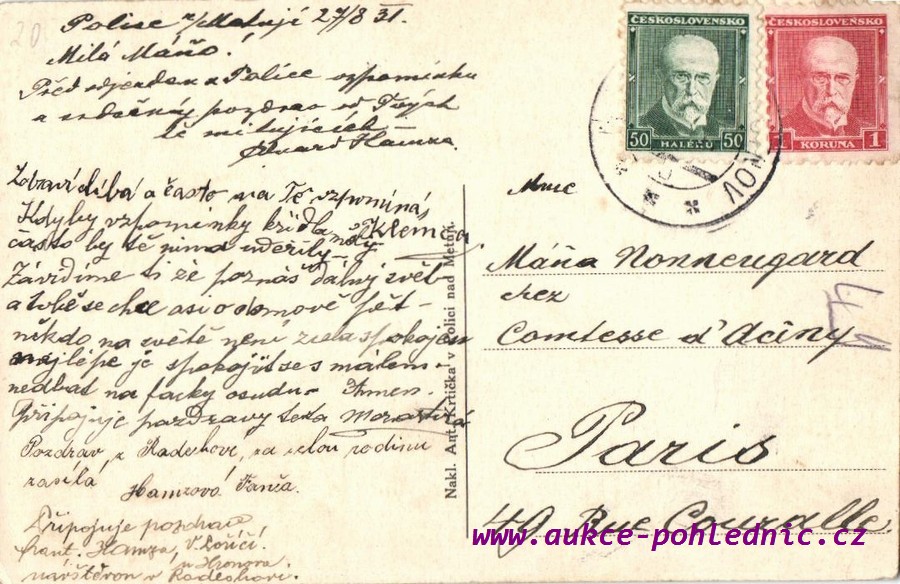 Police n/Metují 27/8 31.
Milá Máňo!
Před odjezdem z Police vzpomínku
a srdečný pozdrav od Tvých
tě milujících
Eduard Hamza.
Zdraví líbá a často na Tě vzpomíná
Klemča
Kdyby vzpomínky křídla měly
často by tě nima udeřily
Závidíme ti že poznáš dálný svět
a tobě se chce asi o domově
nikdo na světě není zcela spokojen
nejlépe je spokojit se s málem
nedbat na facky osudu. Amen.
Připojuje pozdravy teta
Pozdrav z Radešova, za celou rodinu
zasílá
Hamzová Fanča.
Připojuje pozdrav
Frant. Hamza,
u Hronova
v Radešově.
Nakl. Ant. Krtička v Polici nad Metují.
ČESKOSLOVENSKO
50 HALÉŘŮ 50
ČESKOSLOVENSKO
1 KORUNA 1
Mme
Máňa Nonneugard
chez
Comtesse d'Aciny
Paris
49 Rue
www.aukce-pohlednic.cz